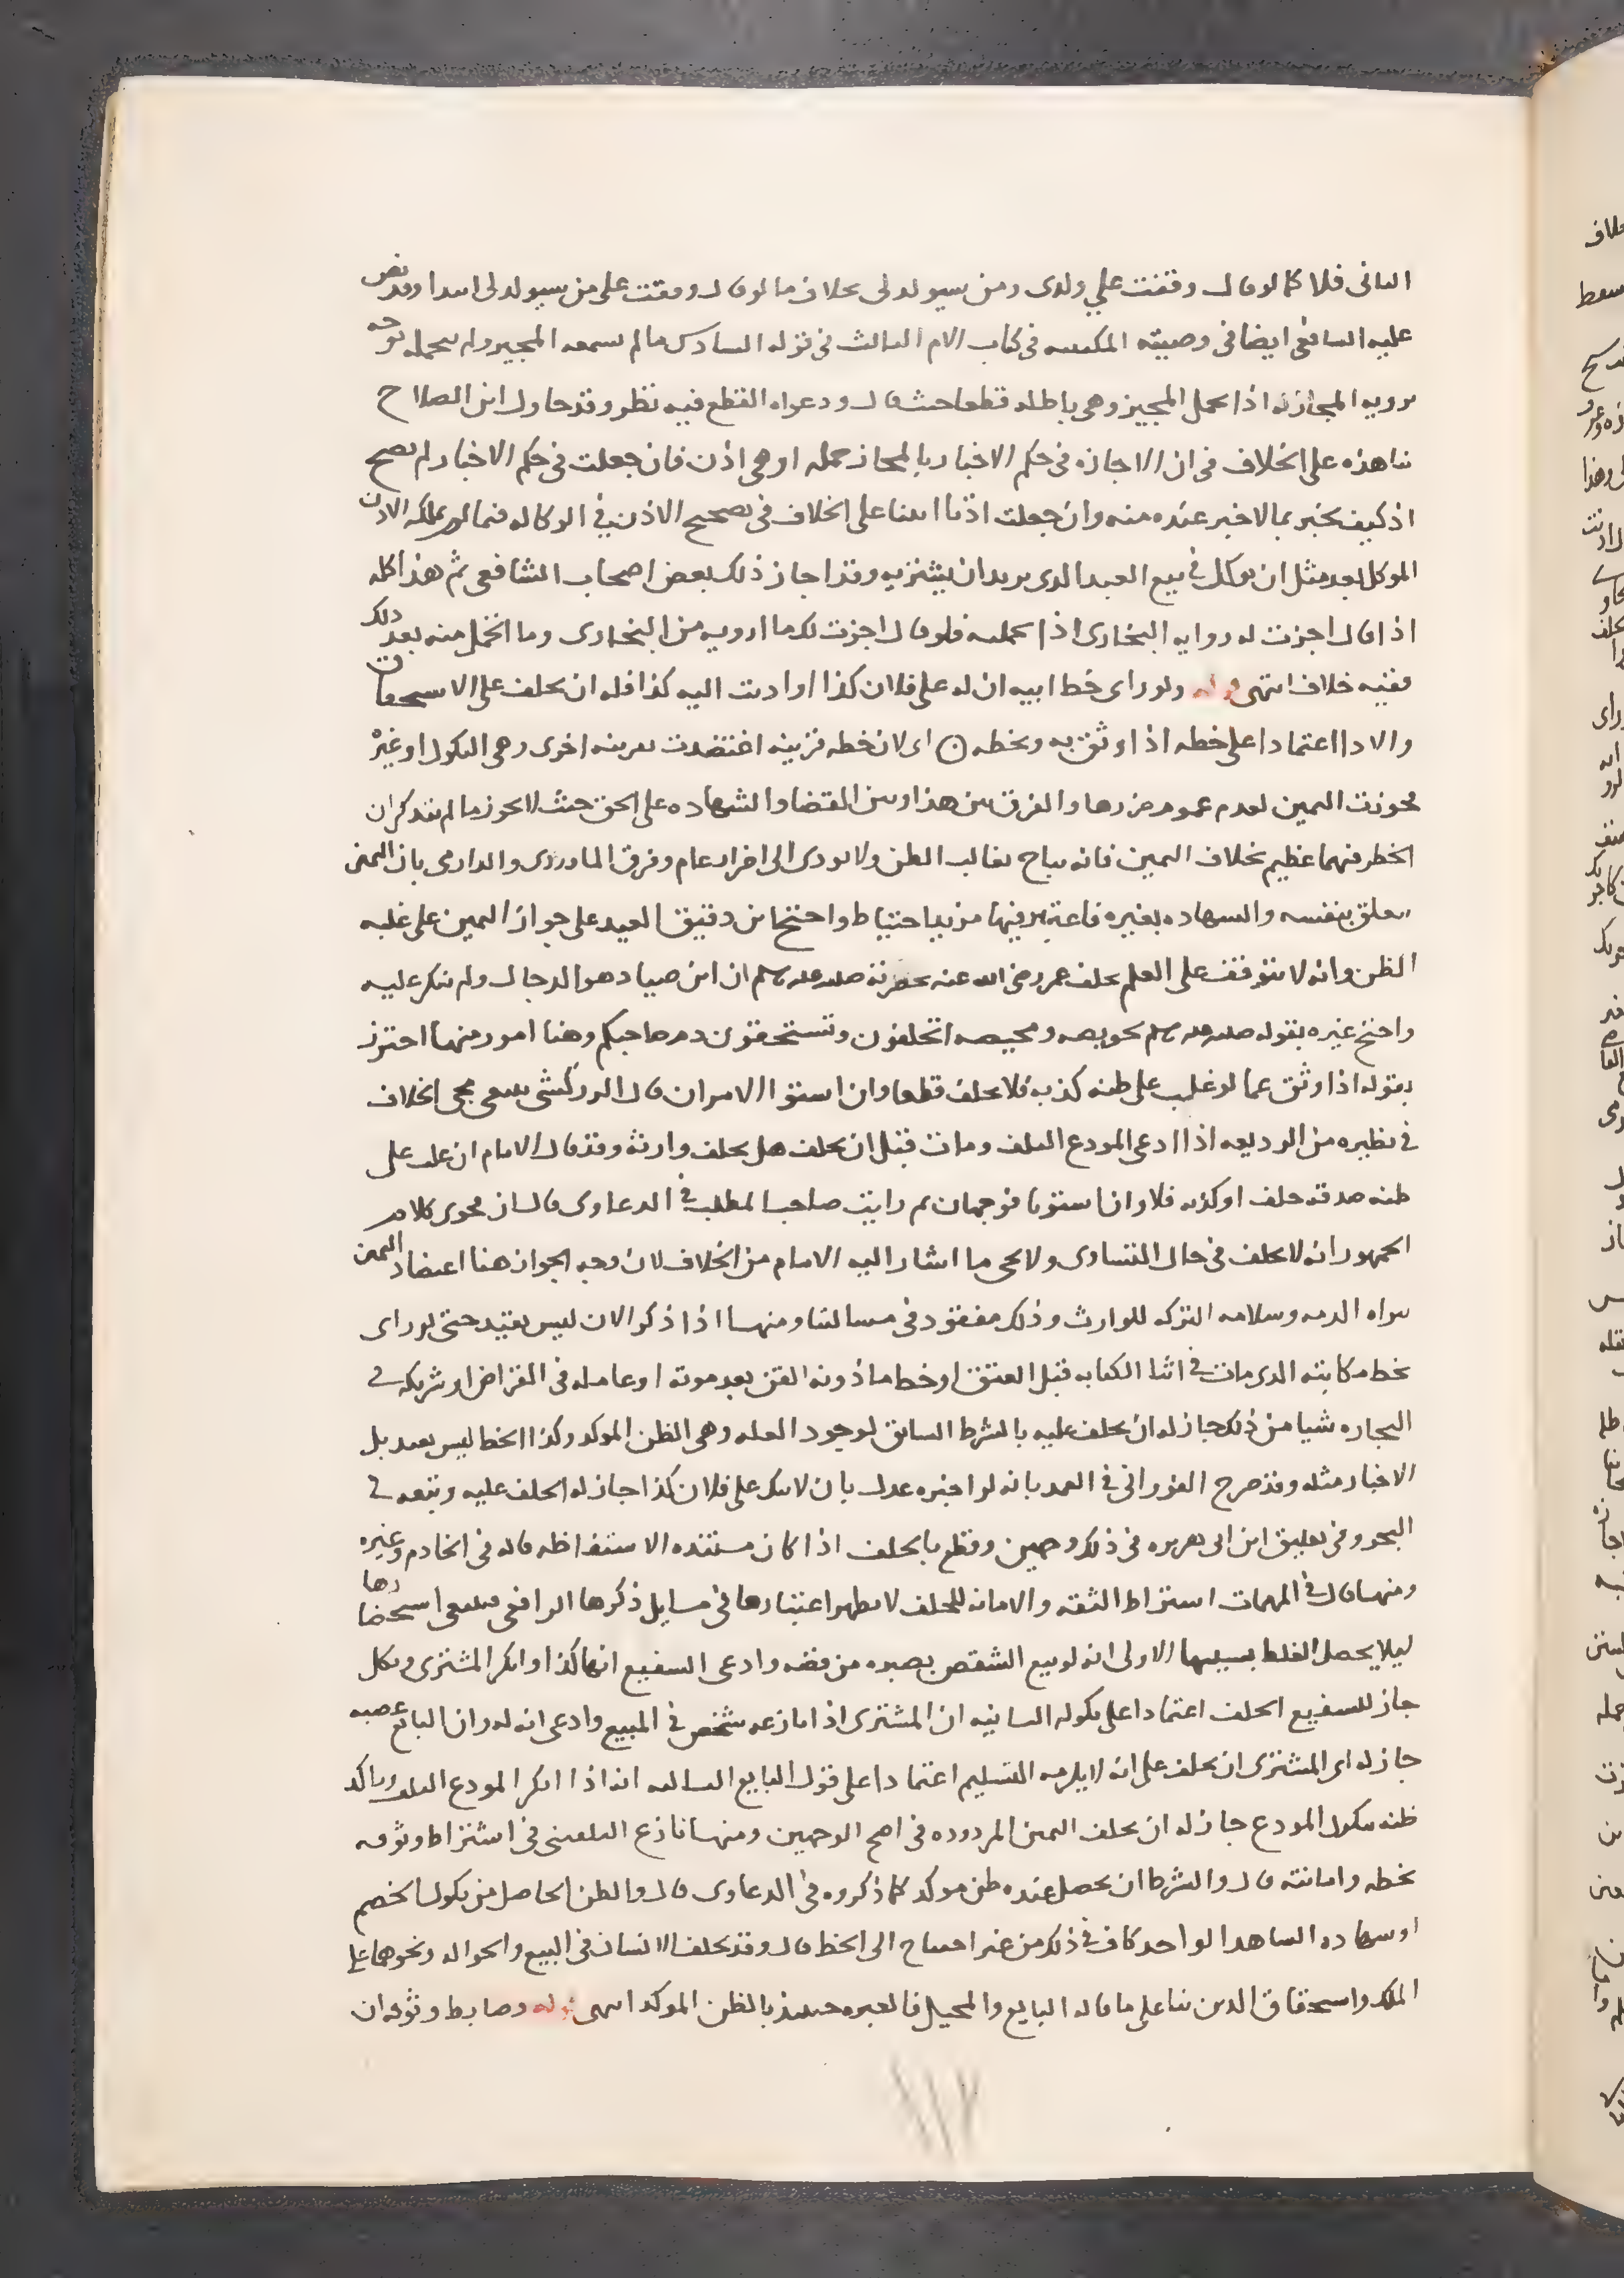 الثانى فلا كما لو قال وقفت علي ولدى ومن سيولد لى بخلاف ما لو قال وقفت على من سيولد لى ابتدا وقد نص
عليه الشافعى ايضا فى وصيته المكتتبه فى كتاب الام الثالث فى قوله السادس ما لم يسمعه المجيز ولم يتحمله بوجه
يرويه المجاز له اذا تحمل المجيز وهى باطله قطعا حيث قال ودعواه القطع فيه نظر وقد حاول ابن الصلاح
بنا هذه على الخلاف فى ان الاجازه فى حكم الاخبار بالمجاز جمله او هى اذن فان جعلت فى حكم الاخبار لم يصح
اذ كيف يخبر بما لا خبر عنده منه وان جعلت اذنا انبنا على الخلاف فى تصحيح الاذن في الوكاله فيما لم يملكه الاذن
الموكل بعد مثل ان يوكل في بيع العبد الذى يريد ان يشتريه وقد اجاز ذلك بعض اصحاب الشافعى ثم هذا كله
اذا قال اجزت له روايه البخارى اذا تحملته فلو قال اجزت لك ما ارويه من البخارى وما اتحمل منه بعد ذلك
ففيه خلاف انتهى قوله ولو راى خط ابيه ان له على فلان كذا او اديت اليه كذا فله ان يحلف على الاستحقاق
والادا اعتمادا على خطه اذا وثق به وبخطه اى لان خطه قرينه اعتضدت بقرينه اخرى وهى النكول او غيره
فجوزت اليمين لعدم عموم ضررها والفرق بين هذا وبين القضا والشهاده على الحق حيث لا يجوز ما لم يتذكر ان
الخطر فيهما عظيم بخلاف اليمين فانه يباح بغالب الظن ولا يودى الى اضرار عام وفرق الماوردى والدارمى بان اليمين
يتعلق بنفسه والشهاده بغيره فاعتبر فيها مزيد احتياط واحتج ابن دقيق العيد على جواز اليمين على غلبه
الظن وانه لا يتوقف على العلم بحلف عمر رضى الله عنه بحضرته صلى الله عليه وسلم ان ابن صياد هو الدجال ولم ينكر عليه
واحتج غيره بقوله صلى الله عليه وسلم لحويصه ومحيصه اتحلفون وتستحقون دم صاحبكم وهنا امور منها احترز
بقوله اذا وثق عما لو غلب على ظنه كذبه فلا يحلف قطعا وان استوا الامران قال الزركشى ينبغى مجى الخلاف
فى نظيره من الوديعه اذا ادعى المودع التلف ومات قبل ان يحلف هل يحلف وارثه وقد قال الامام ان غلب على
ظنه صدقه حلف او كذبه فلا وان استويا فوجهان ثم رايت صاحب المطلب في الدعاوى قال ان فحوى كلام
الجمهور انه لا يحلف فى حال التساوى ولا يجى ما اشار اليه الامام من الخلاف لان وجه الجواز هنا اعتضاد اليمين
ببراه الذمه وسلامه التركه للوارث وذلك مفقود فى مسالتنا ومنها اذا ذكر الاب ليس بقيد حتى لو راى
بخط مكاتبه الذى مات في اثنا الكتابه قبل العتق او خط ماذونه القن بعد موته او عامله فى القراض او شريكه فى
التجاره شيا من ذلك جاز له ان يحلف عليه بالشرط السابق لوجود العله وهى الظن الموكد وكذا الخط ليس بقيد بل
الاخبار مثله وقد صرح الفورانى فى العمد بانه لو اخبره عدل بان لابيك على فلان كذا جاز له الحلف عليه وتبعه فى
البحر وفى تعليق ابن ابى هريره فى ذلك وجهين وقطع بالحلف اذا كان مستنده الاستفاظه قاله فى الخادم وغيره
ومنها قال في المهمات اشتراط الثقه والامانه للحلف لا يظهر اعتبارها فى مسايل ذكرها الرافعى فينبغى استحضارها
ليلا يحصل الغلط بسببها الاولى انه لو بيع الشقص بصبره من فضه وادعى الشفيع انها كذا وانكر المشترى ونكل
جاز للشفيع الحلف اعتمادا على نكوله الثانيه ان المشترى اذا نازعه شخص في المبيع وادعى انه له وان البائع غصبه
جاز له اى المشترى ان يحلف على انه لا يلزمه التسليم اعتمادا على قول البايع الثالثه انه اذا انكر المودع التلف وتاكد
ظنه بنكول المودع جاز له ان يحلف اليمين المردوده فى اصح الوجهين ومنها نازع البلقينى فى اشتراط وثوقه
بخطه وامانته قال والشرط ان يحصل عنده ظن موكد كما ذكروه فى الدعاوى قال والظن الحاصل من نكول الخصم
او شهاده الشاهد الواحد كاف في ذلك من غير احتياج الى الخط قال وقد يحلف الانسان فى البيع والحواله ونحوهما على
الملك واستحقاق الدين بنا على ما قاله البايع والمحيل فالعبره حينئذ بالظن الموكد انتهى قوله وضابط وثوقه ان